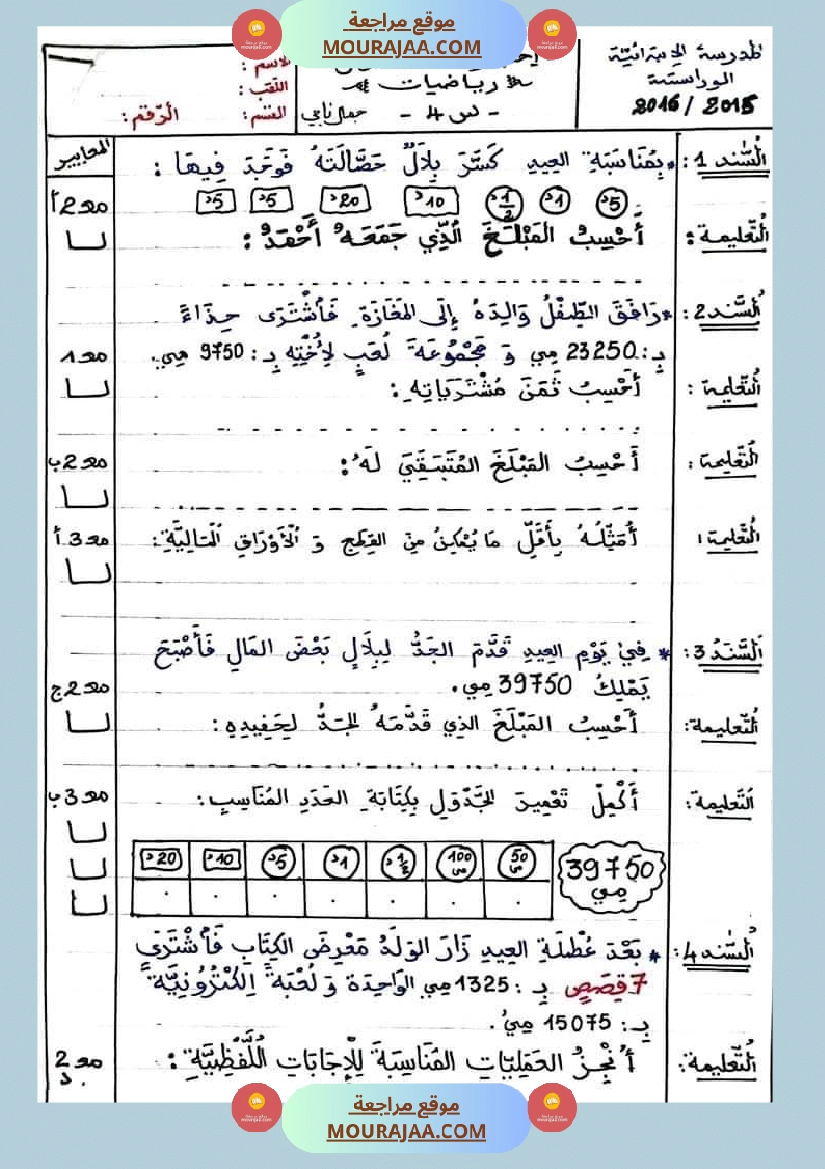 موقع مراجعة
MOURAJAA.COM
المدرسة الابتدائيّة
الوراسنيّة
2016 / 2015
رياضيات
- س 4 - جمال نابي
الاسم :
اللقب :
القسم: الرّقم:
المعايير
السّند 1: * بِمُنَاسَبَةِ العِيدِ كَسَّرَ بِلَالٌ حَصَّالَتَهُ فَوَجَدَ فِيهَا :
5د 1د 1/2د 10د 20د 5د 5د
مع 2 أ
التّعليمة: أَحْسِبُ المَبْلَغَ الّذِي جَمَعَهُ أَحْمَدُ :
السّند 2: * رَافَقَ الطِّفْلُ وَالِدَهُ إِلَى المَغَازَةِ فَاشْتَرَى حِذَاءً
بِـ: 23250 مي وَ مَجْمُوعَةَ لُعَبٍ لِأُخْتِهِ بِـ: 9750 مي.
مع 1
التّعليمة: أَحْسِبُ ثَمَنَ مُشْتَرَيَاتِهِ :
التّعليمة: أَحْسِبُ المَبْلَغَ المُتَبَقِّيَ لَهُ :
مع 2 ب
التّعليمة: أُمَثِّلُهُ بِأَقَلِّ مَا يُمْكِنُ مِنَ القِطَعِ وَ الأَوْرَاقِ المَالِيَّةِ:
مع 3 أ
السّند 3: * فِي يَوْمِ العِيدِ قَدَّمَ الجَدُّ لِبِلَالٍ بَعْضَ المَالِ فَأَصْبَحَ
يَمْلِكُ 39750 مي.
مع 2 ج
التّعليمة: أَحْسِبُ المَبْلَغَ الذِي قَدَّمَهُ الجَدُّ لِحَفِيدِهِ :
التّعليمة: أُكْمِلُ تَعْمِيرَ الجَدْوَلِ بِكِتَابَةِ العَدَدِ المُنَاسِبِ:
مع 3 ب
39750 مي
50 مي 100 مي 1/2د 1د 5د 10د 20د
السّند 4: * بَعْدَ عُطْلَةِ العِيدِ زَارَ الوَلَدُ مَعْرِضَ الكِتَابِ فَاشْتَرَى
7 قِصَصٍ بِـ: 1325 مي الوَاحِدَة وَ لُعْبَةً اِلكْتْرُونِيَّةً
بِـ: 15075 مي.
التّعليمة: أُنْجِزُ العَمَلِيَّاتِ المُنَاسِبَةَ لِلْإِجَابَاتِ اللَّفْظِيَّةِ :
مع 2 د
موقع مراجعة
MOURAJAA.COM